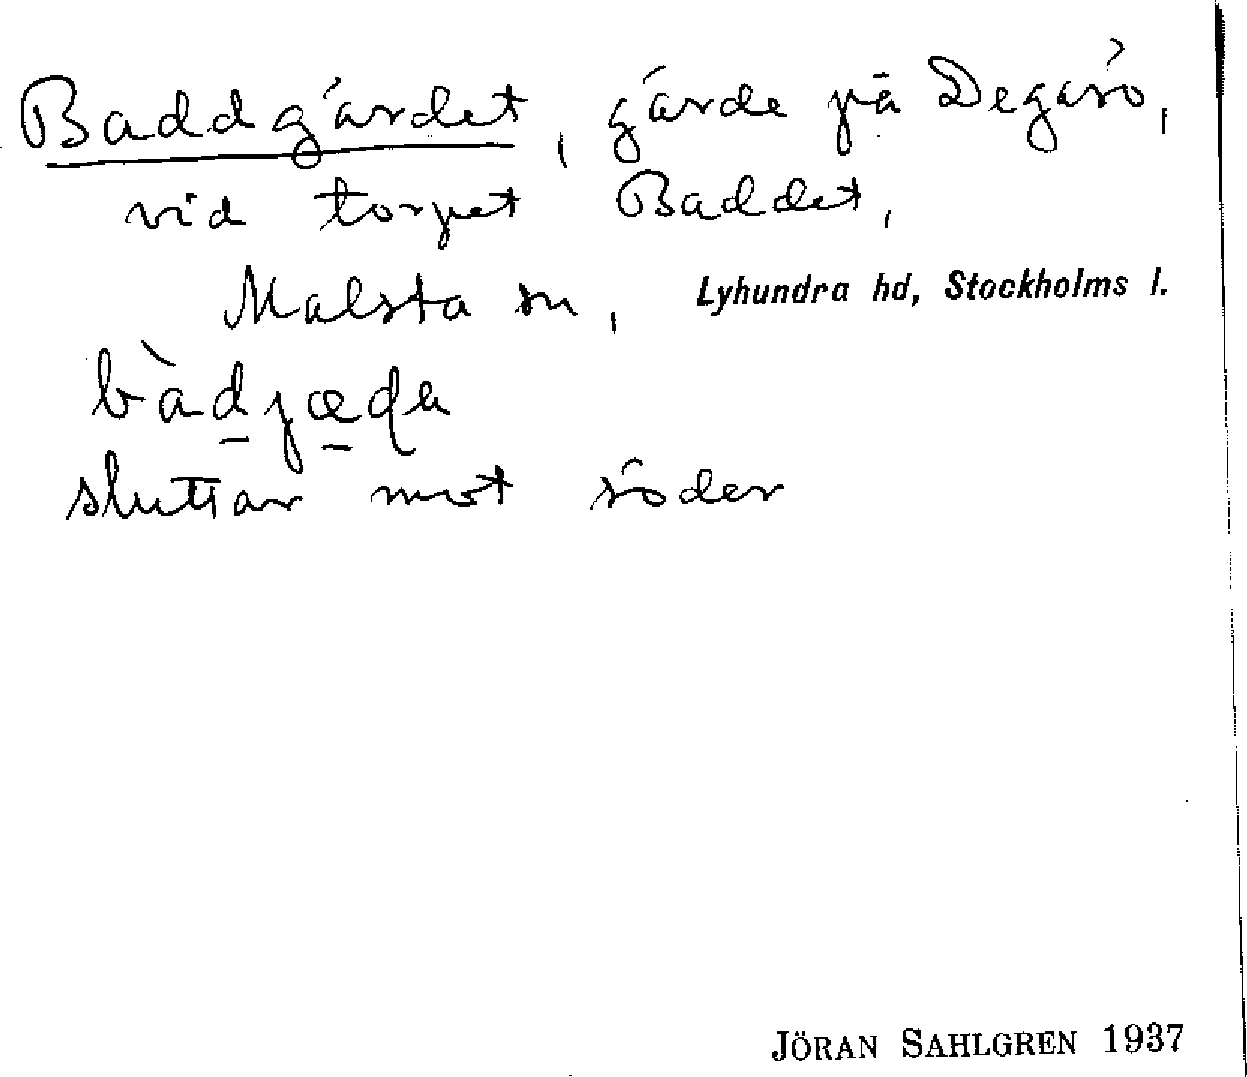 Baddgärdet, gärde på Degerö,
vid torpet Baddet,
Malsta sn, Lyhundra hd, Stockholms l.
bàd̲jæ̲ɖe
sluttar mot söder
JÖRAN SAHLGREN 1937